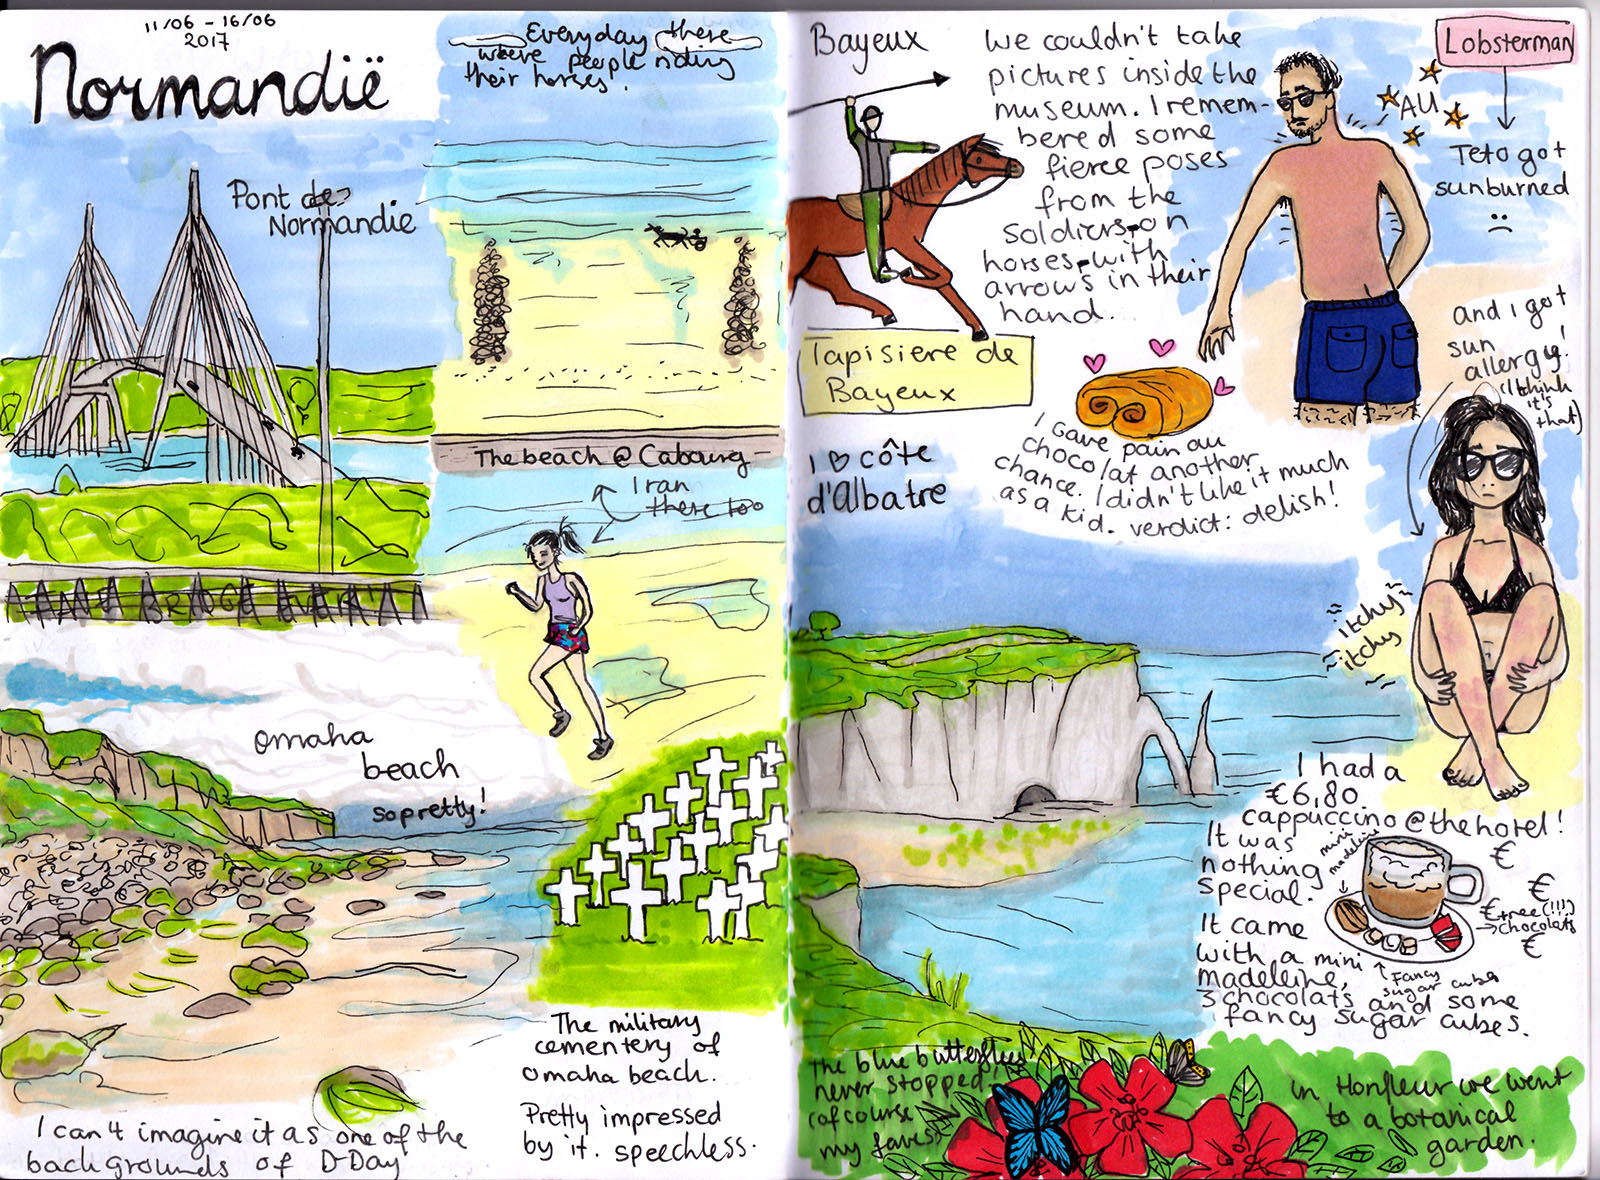 11/06 - 16/06
2017
Normandië
Everyday there
were people riding
their horses.
Pont de
Normandie
The beach @ Cabourg
I ran
there too
Omaha
beach
so pretty!
The military
cementery of
Omaha beach.
Pretty impressed
by it. speechless.
I can't imagine it as one of the
backgrounds of D-Day
Bayeux
We couldn't take
pictures inside the
museum. I remem-
bered some
fierce poses
from the
soldiers-on
horses-with
arrows in their
hand.
Tapisiere de
Bayeux
Lobsterman
AU
Teto got
sunburned
:(
and I got
sun
allergy!
(I think
it's
that)
I gave pain au
chocolat another
chance. I didn't like it much
as a kid. verdict: delish!
I ♡ côte
d'Albatre
itchy
itchy
I had a
€6,80
cappuccino @ the hotel!
It was
nothing
special.
mini
madeleine
It came
with a mini
madeleine,
3 chocolats and some
fancy sugar cubes.
Fancy
sugar cubes
€
€
€ free (!!!)
→ chocolats
€
The blue butterflies
never stopped.
(of course
my faves)
in Honfleur we went
to a botanical
garden.